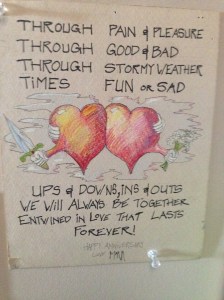 THROUGH PAIN & PLEASURE
THROUGH GOOD & BAD
THROUGH STORMY WEATHER
TIMES FUN OR SAD
UPS & DOWNS, INS & OUTS
WE WILL ALWAYS BE TOGETHER
ENTWINED IN LOVE THAT LASTS
FOREVER!
HAPPY ANNIVERSARY
LOVE